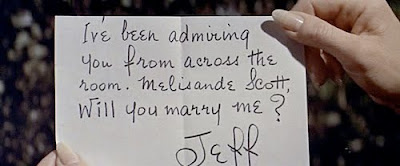 I've been admiring
you from across the
room. Melisande Scott,
Will you marry me?
Jeff